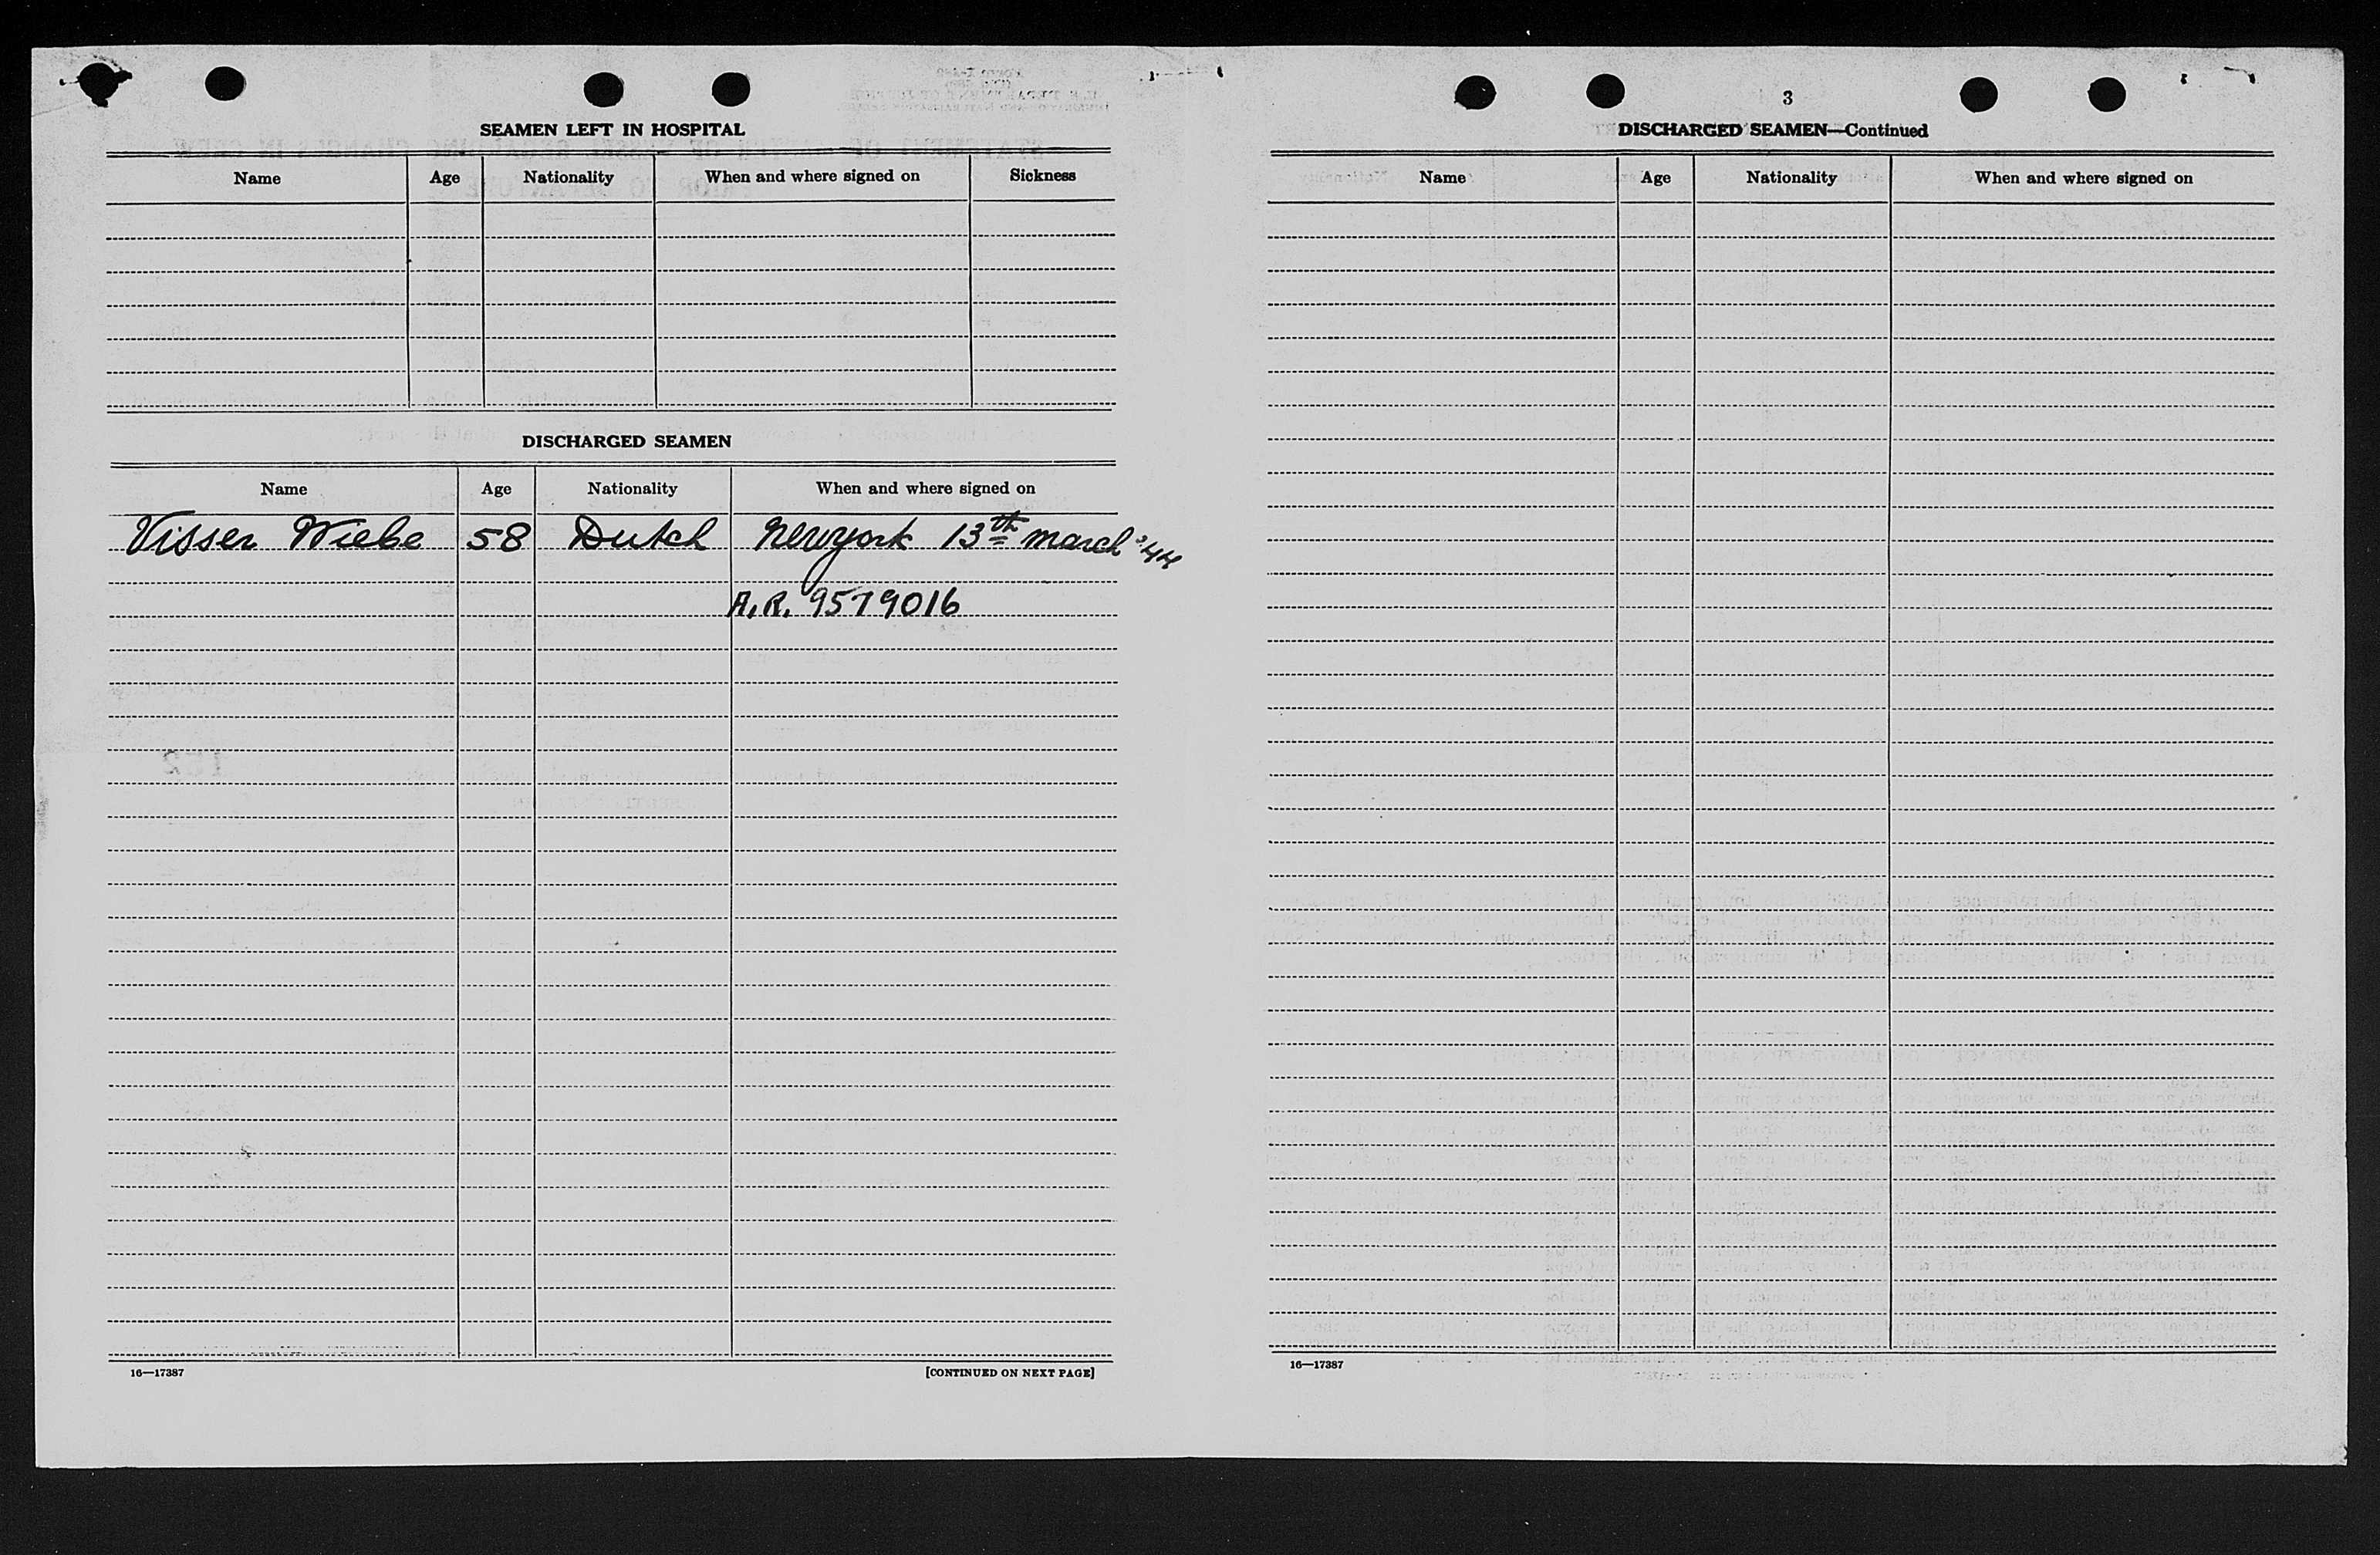 SEAMEN LEFT IN HOSPITAL
Name Age Nationality When and where signed on Sickness
DISCHARGED SEAMEN
Name Age Nationality When and where signed on
Visser Wiebe 58 Dutch Newyork 13th march '44
A.R. 9579016
16—17387 [CONTINUED ON NEXT PAGE]
3
DISCHARGED SEAMEN—Continued
Name Age Nationality When and where signed on
16—17387